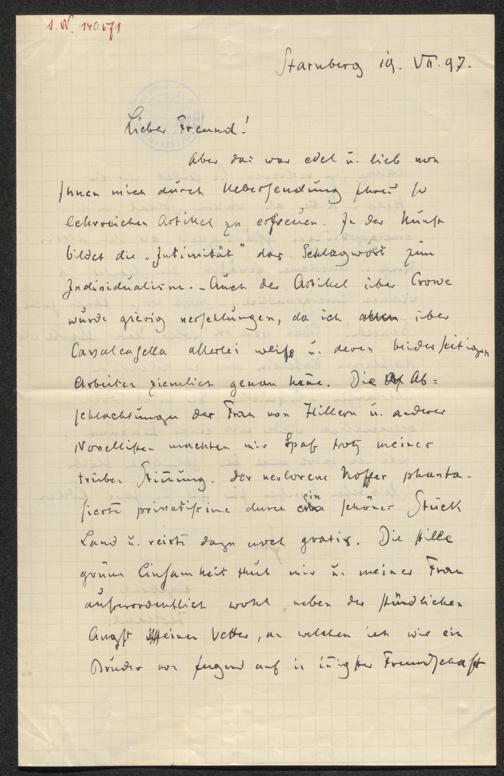 I.N. 140.671
Starnberg 19. VII. 97.
Lieber Freund!
Aber das war edel u. lieb von
Ihnen mich durch Uebersendung Ihres so
lehrreichen Artikel zu erfreuen. In der Kunst
bildet die „Intimität" das Schlagwort zum
Individualism. – Auch der Artikel über Crowe
wurde gierig verschlungen, da ich über
Cavalcasella allerlei weiß u. deren beiderseitigen
Arbeiten ziemlich genau kenne. Die Ab=
schlachtungen der Frau von Hillern u. anderer
Novellisten machten mir Spaß trotz meiner
trüben Stimmung. Der verlorene Koffer phanta-
sierte privatissime durch ein schönes Stück
Land u. reiste dazu noch gratis. Die stille
grüne Einsamkeit thut mir u. meiner Frau
außerordentlich wohl, neben der stündlichen
Angst um einen Vetter, an welchen ich wie ein
Bruder von Jugend auf in innigster Freundschaft